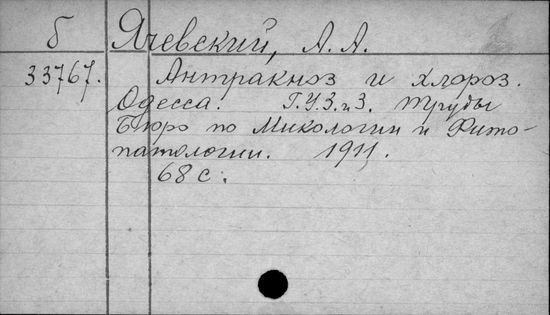 Б Ячевский, А. А.
33767. Антракноз и хлороз.
Одесса. Г.У.З.и З. Труды
Бюро по Микологии и Фито-
патологии. 1911.
68 с.